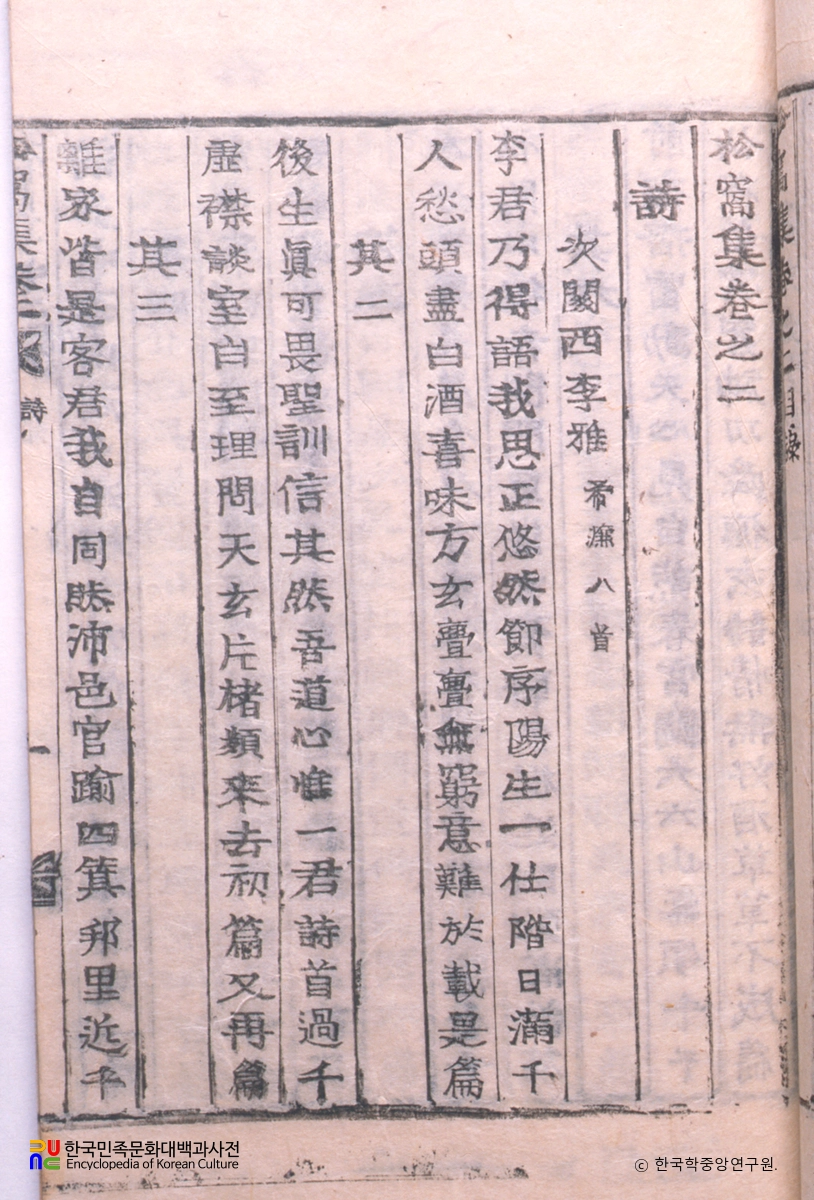 松窩集卷之二
詩
次關西李雅 希濂 八首
李君乃得語我思正悠然節序陽生一仕階日滿千
人愁頭盡白酒喜味方玄亹亹無窮意難於載是篇
其二
後生眞可畏聖訓信其然吾道心惟一君詩首過千
虛襟談室白至理問天玄片楮類來去初篇又再篇
其三
離家皆是客君我自同然沛邑官踰四箕邦里近千
窩集卷之二 詩 一
窩集卷之二目錄
한국민족문화대백과사전
Encyclopedia of Korean Culture
© 한국학중앙연구원.